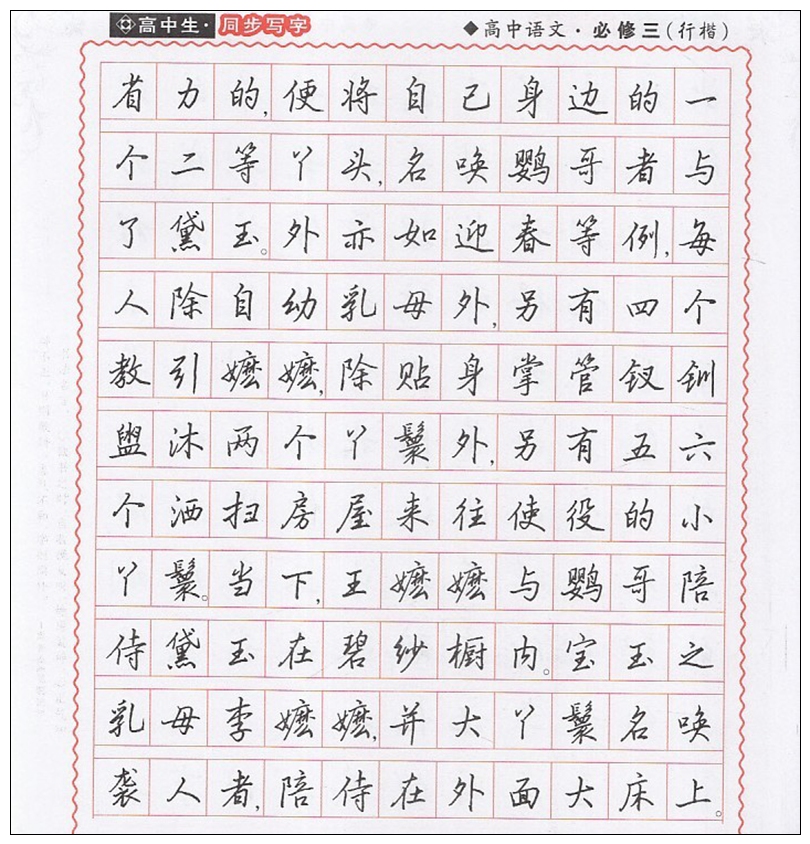 高中生·同步写字 ◆高中语文·必修三(行楷)
省力的,便将自己身边的一
个二等丫头,名唤鹦哥者与
了黛玉。外亦如迎春等例,每
人除自幼乳母外,另有四个
教引嬷嬷,除贴身掌管钗钏
盥沐两个丫鬟外,另有五六
个洒扫房屋来往使役的小
丫鬟。当下,王嬷嬷与鹦哥陪
侍黛玉在碧纱橱内。宝玉之
乳母李嬷嬷,并大丫鬟名唤
袭人者,陪侍在外面大床上。